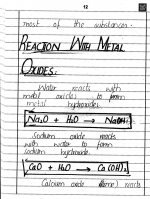 12
most of the substances.
REACTION WITH METAL
OXIDES:
Water reacts with
metal oxides to form
metal hydroxides.
Na₂O + H₂O → NaOH
Sodium oxide reacts
with water to form
sodium hydroxide.
CaO + H₂O → Ca(OH)₂
Calcium oxide (lime) reacts